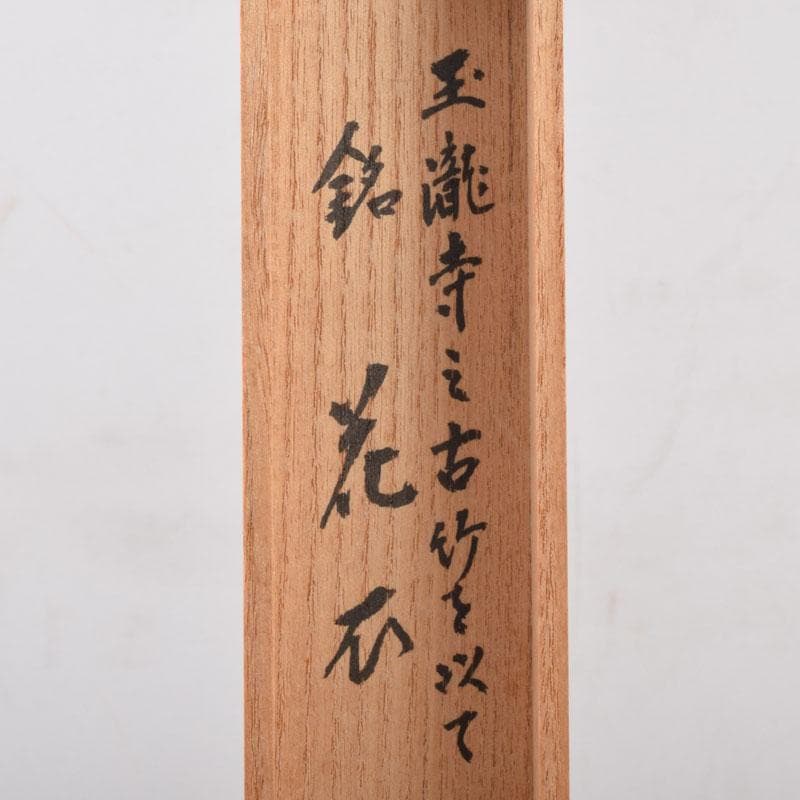 玉瀧寺之古竹を以て
銘 花衣